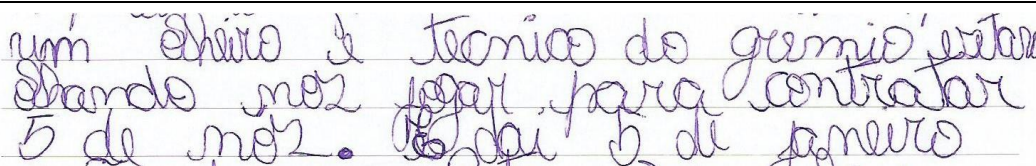 um olheiro é tecnico do gremio estav
olhando noz jogar para contratar
5 de nóz. E dai 5 de janeiro